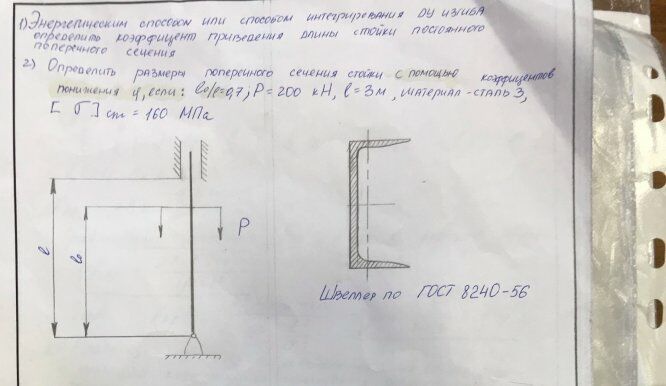 1) Энергетическим способом или способом интегрирования ДУ изгиба
определить коэффициент приведения длины стойки постоянного
поперечного сечения
2) Определить размеры поперечного сечения стойки с помощью коэффицентов
понижения φ, если: l₀/l=0,7; P=200 кН, l=3м, материал-сталь 3,
[σ]сж=160 МПа
P
l
l₀
Швеллер по ГОСТ 8240-56